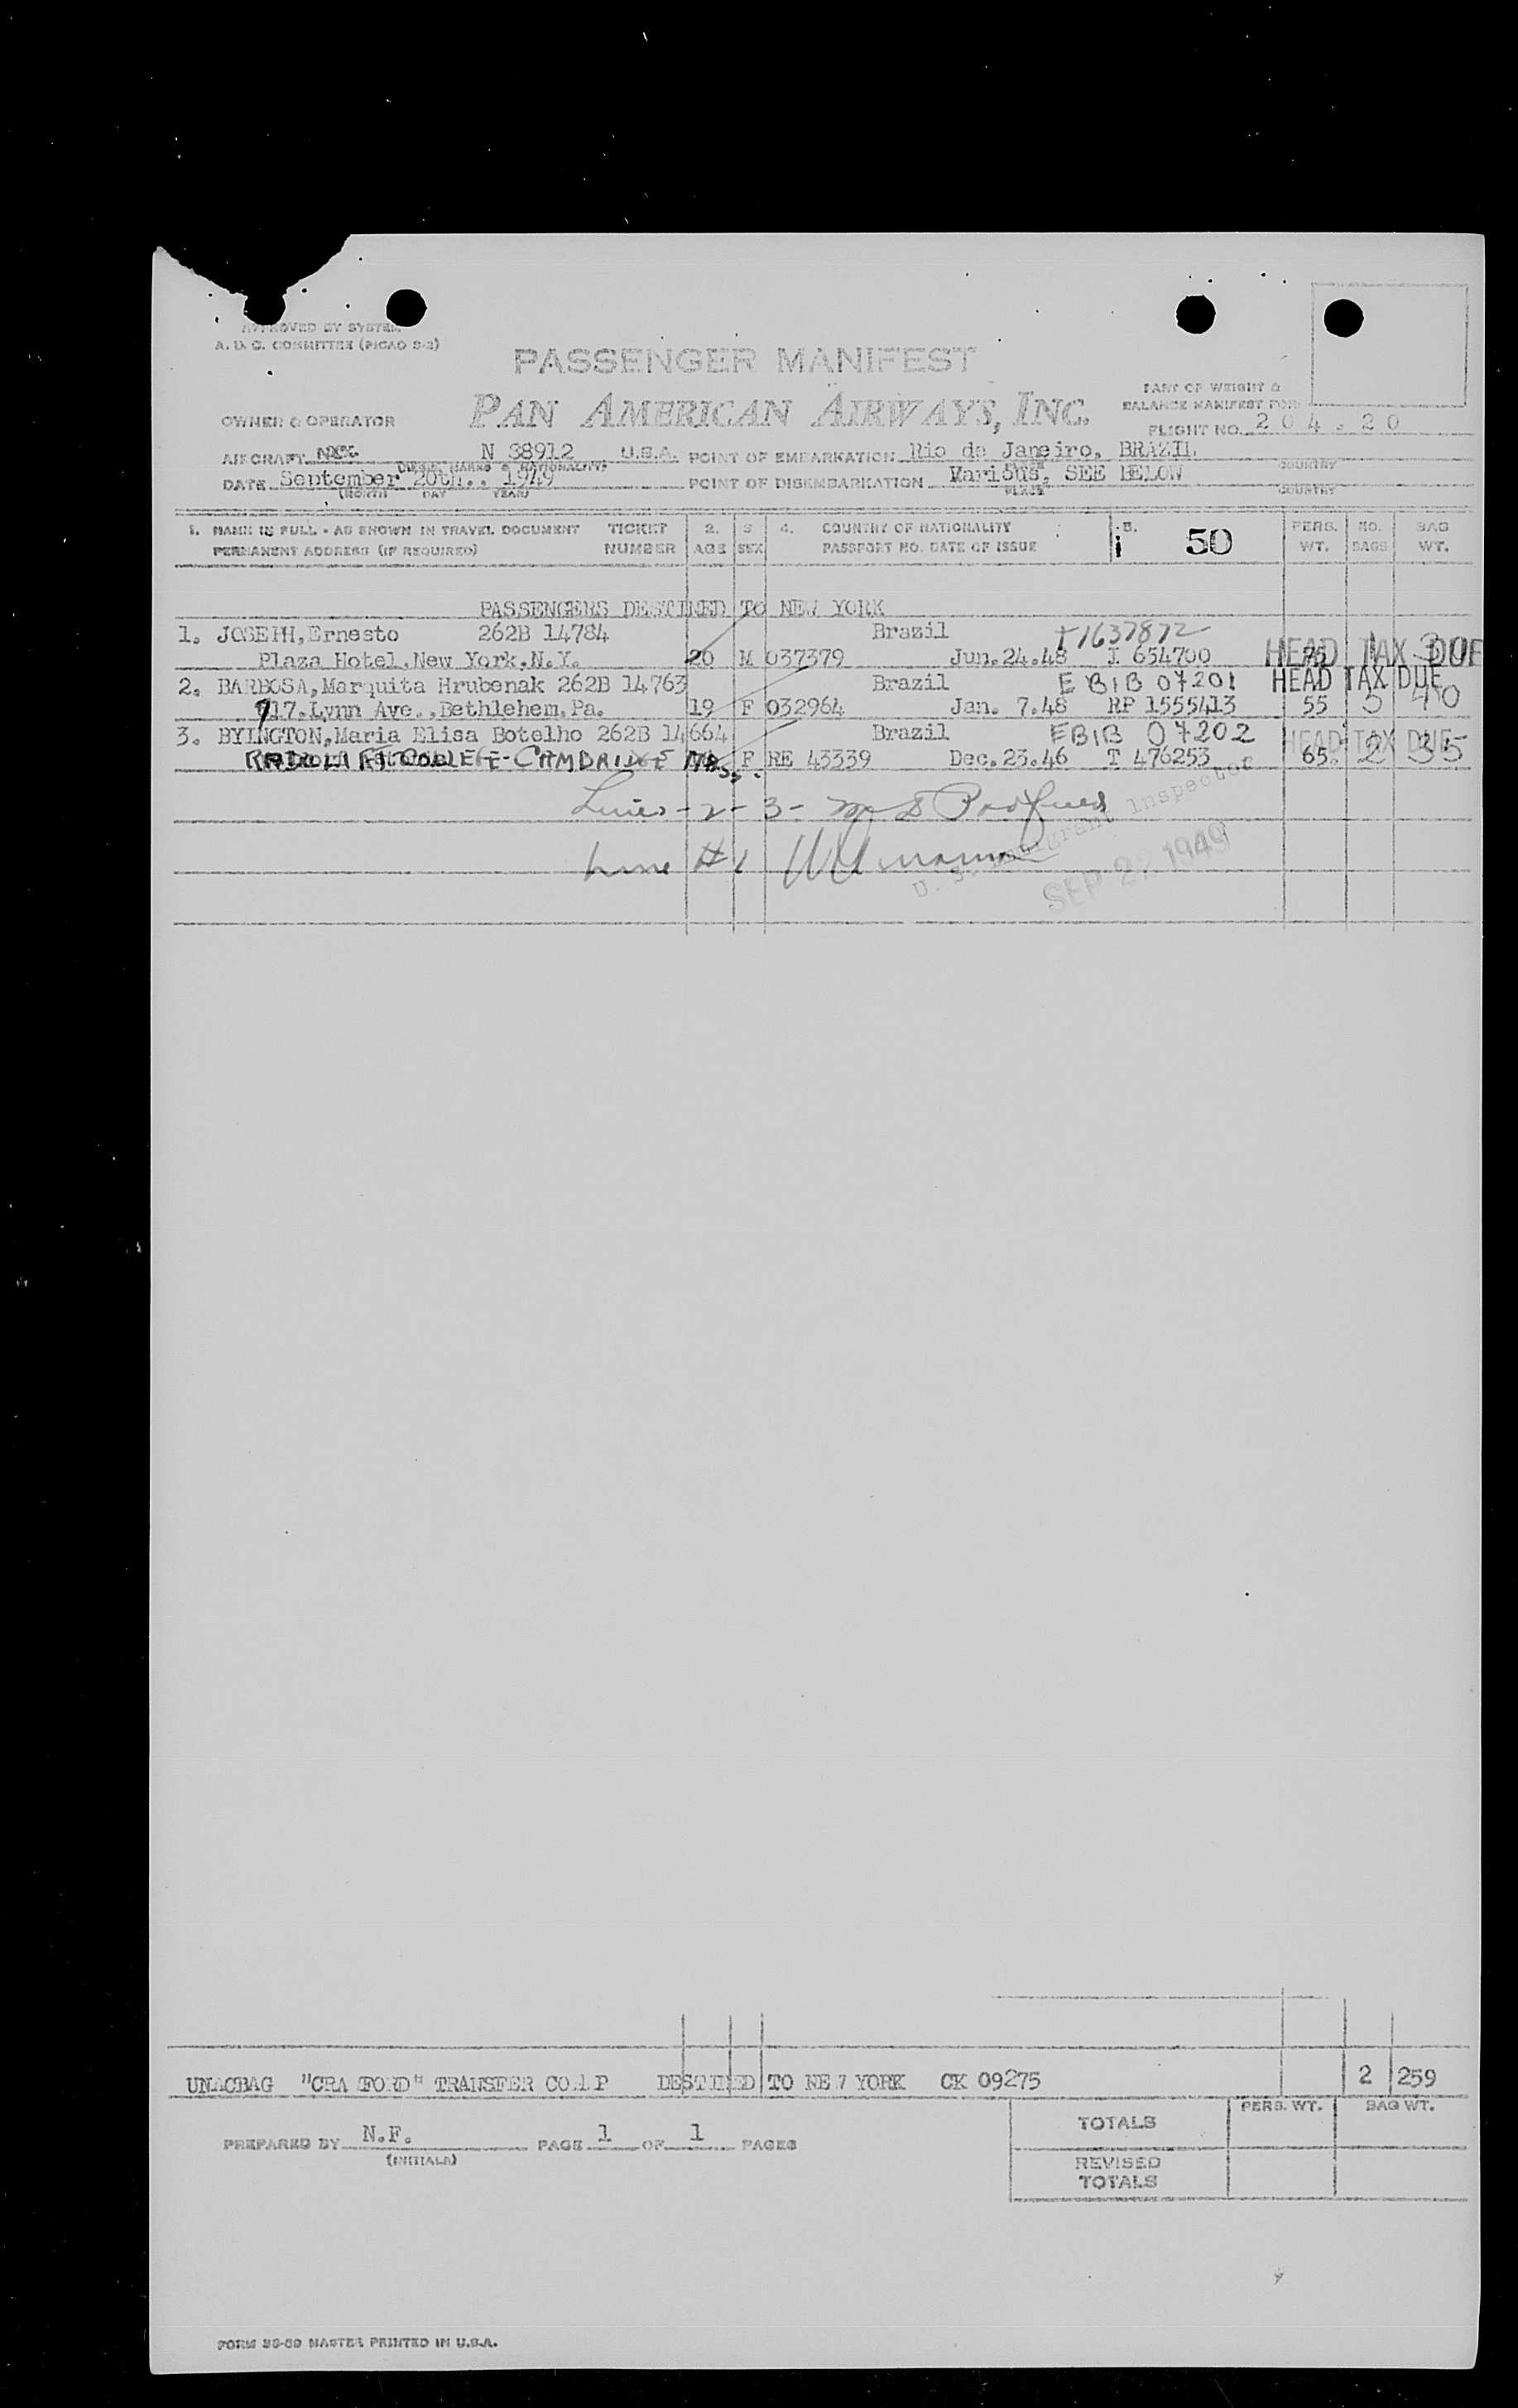 APPROVED BY SYSTEM
A. D. C. COMMITTEE (PICAO S-2)
PASSENGER MANIFEST
PART OF WEIGHT &
BALANCE MANIFEST FOR
OWNER & OPERATOR PAN AMERICAN AIRWAYS, INC.
FLIGHT NO. 204.20
AIRCRAFT N 38912 U.S.A. POINT OF EMBARKATION Rio de Janeiro, BRAZIL
MARKS & NATIONALITY) COUNTRY
DATE September 20th., 1949 POINT OF DISEMBARKATION Various, SEE BELOW
(MONTH DAY YEAR) PLACE COUNTRY
1. NAME IN FULL - AS SHOWN IN TRAVEL DOCUMENT TICKET 2. 3 4. COUNTRY OF NATIONALITY 5. 50 PERS. NO. BAG
PERMANENT ADDRESS (IF REQUIRED) NUMBER AGE SEX PASSPORT NO. DATE OF ISSUE WT. BAGS WT.
PASSENGERS DESTINED TO NEW YORK
1. JOSEPH, Ernesto 262B 14784 Brazil T1637872
Plaza Hotel, New York, N.Y. 20 M 037379 Jun.24.48 I 654700 HEAD TAX DUE
2. BARBOSA, Marquita Hrubenak 262B 14763 Brazil EBIB 07201 HEAD TAX DUE
717. Lynn Ave., Bethlehem, Pa. 19 F 032964 Jan. 7.48 RP 1555413 55 5 40
3. BYINGTON, Maria Elisa Botelho 262B 14664 Brazil EBIB 07202 HEAD TAX DUE
COLLEGE - CAMBRIDGE MASS. F RE 43339 Dec.23.46 T 476253 65 2 35
Lines - 2 - 3 -
Line #1
U. S. Immigrant Inspector
SEP 22 1949
UNACBAG "CRA FORD" TRANSFER CO P DESTINED TO NEW YORK CK 09275 2 259
TOTALS PERS. WT. BAG WT.
PREPARED BY N.F. PAGE 1 OF 1 PAGES
(INITIALS)
REVISED
TOTALS
FORM 36-39 MASTER PRINTED IN U.S.A.